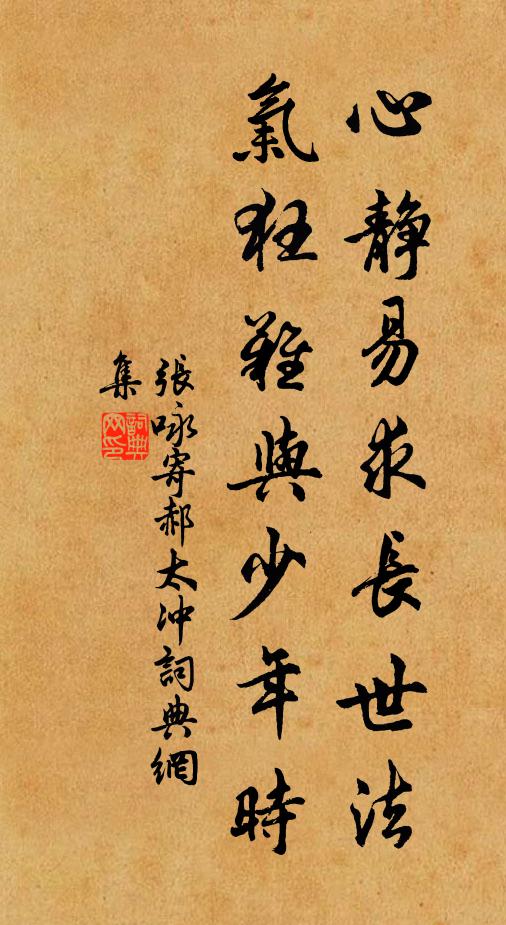 心靜易求長世法
氣狂難與少年時
張咏寄郝太沖詞典網
集
詞典網印